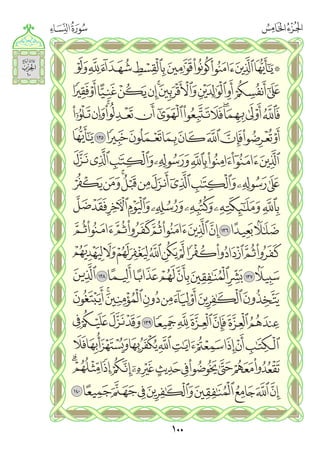 الجُزْءُ الخَامِسُ
سُورَةُ النِّسَاءِ
الحِزْبُ
۞ يَٰٓأَيُّهَا ٱلَّذِينَ ءَامَنُوا۟ كُونُوا۟ قَوَّٰمِينَ بِٱلْقِسْطِ شُهَدَآءَ لِلَّهِ وَلَوْ
عَلَىٰٓ أَنفُسِكُمْ أَوِ ٱلْوَٰلِدَيْنِ وَٱلْأَقْرَبِينَ إِن يَكُنْ غَنِيًّا أَوْ فَقِيرًا
فَٱللَّهُ أَوْلَىٰ بِهِمَا فَلَا تَتَّبِعُوا۟ ٱلْهَوَىٰٓ أَن تَعْدِلُوا۟ وَإِن تَلْوُۥٓا۟
أَوْ تُعْرِضُوا۟ فَإِنَّ ٱللَّهَ كَانَ بِمَا تَعْمَلُونَ خَبِيرًا ١٣٥ يَٰٓأَيُّهَا
ٱلَّذِينَ ءَامَنُوٓا۟ ءَامِنُوا۟ بِٱللَّهِ وَرَسُولِهِۦ وَٱلْكِتَٰبِ ٱلَّذِى نَزَّلَ
عَلَىٰ رَسُولِهِۦ وَٱلْكِتَٰبِ ٱلَّذِىٓ أَنزَلَ مِن قَبْلُ وَمَن يَكْفُرْ
بِٱللَّهِ وَمَلَٰٓئِكَتِهِۦ وَكُتُبِهِۦ وَرُسُلِهِۦ وَٱلْيَوْمِ ٱلْءَاخِرِ فَقَدْ ضَلَّ
ضَلَٰلًۢا بَعِيدًا ١٣٦ إِنَّ ٱلَّذِينَ ءَامَنُوا۟ ثُمَّ كَفَرُوا۟ ثُمَّ ءَامَنُوا۟ ثُمَّ
كَفَرُوا۟ ثُمَّ ٱزْدَادُوا۟ كُفْرًا لَّمْ يَكُنِ ٱللَّهُ لِيَغْفِرَ لَهُمْ وَلَا لِيَهْدِيَهُمْ
سَبِيلًۢا ١٣٧ بَشِّرِ ٱلْمُنَٰفِقِينَ بِأَنَّ لَهُمْ عَذَابًا أَلِيمًا ١٣٨ ٱلَّذِينَ
يَتَّخِذُونَ ٱلْكَٰفِرِينَ أَوْلِيَآءَ مِن دُونِ ٱلْمُؤْمِنِينَ أَيَبْتَغُونَ
عِندَهُمُ ٱلْعِزَّةَ فَإِنَّ ٱلْعِزَّةَ لِلَّهِ جَمِيعًا ١٣٩ وَقَدْ نَزَّلَ عَلَيْكُمْ فِى
ٱلْكِتَٰبِ أَنْ إِذَا سَمِعْتُمْ ءَايَٰتِ ٱللَّهِ يُكْفَرُ بِهَا وَيُسْتَهْزَأُ بِهَا فَلَا
تَقْعُدُوا۟ مَعَهُمْ حَتَّىٰ يَخُوضُوا۟ فِى حَدِيثٍ غَيْرِهِۦٓ إِنَّكُمْ إِذًا مِّثْلُهُمْ
إِنَّ ٱللَّهَ جَامِعُ ٱلْمُنَٰفِقِينَ وَٱلْكَٰفِرِينَ فِى جَهَنَّمَ جَمِيعًا ١٤٠
١٠٠